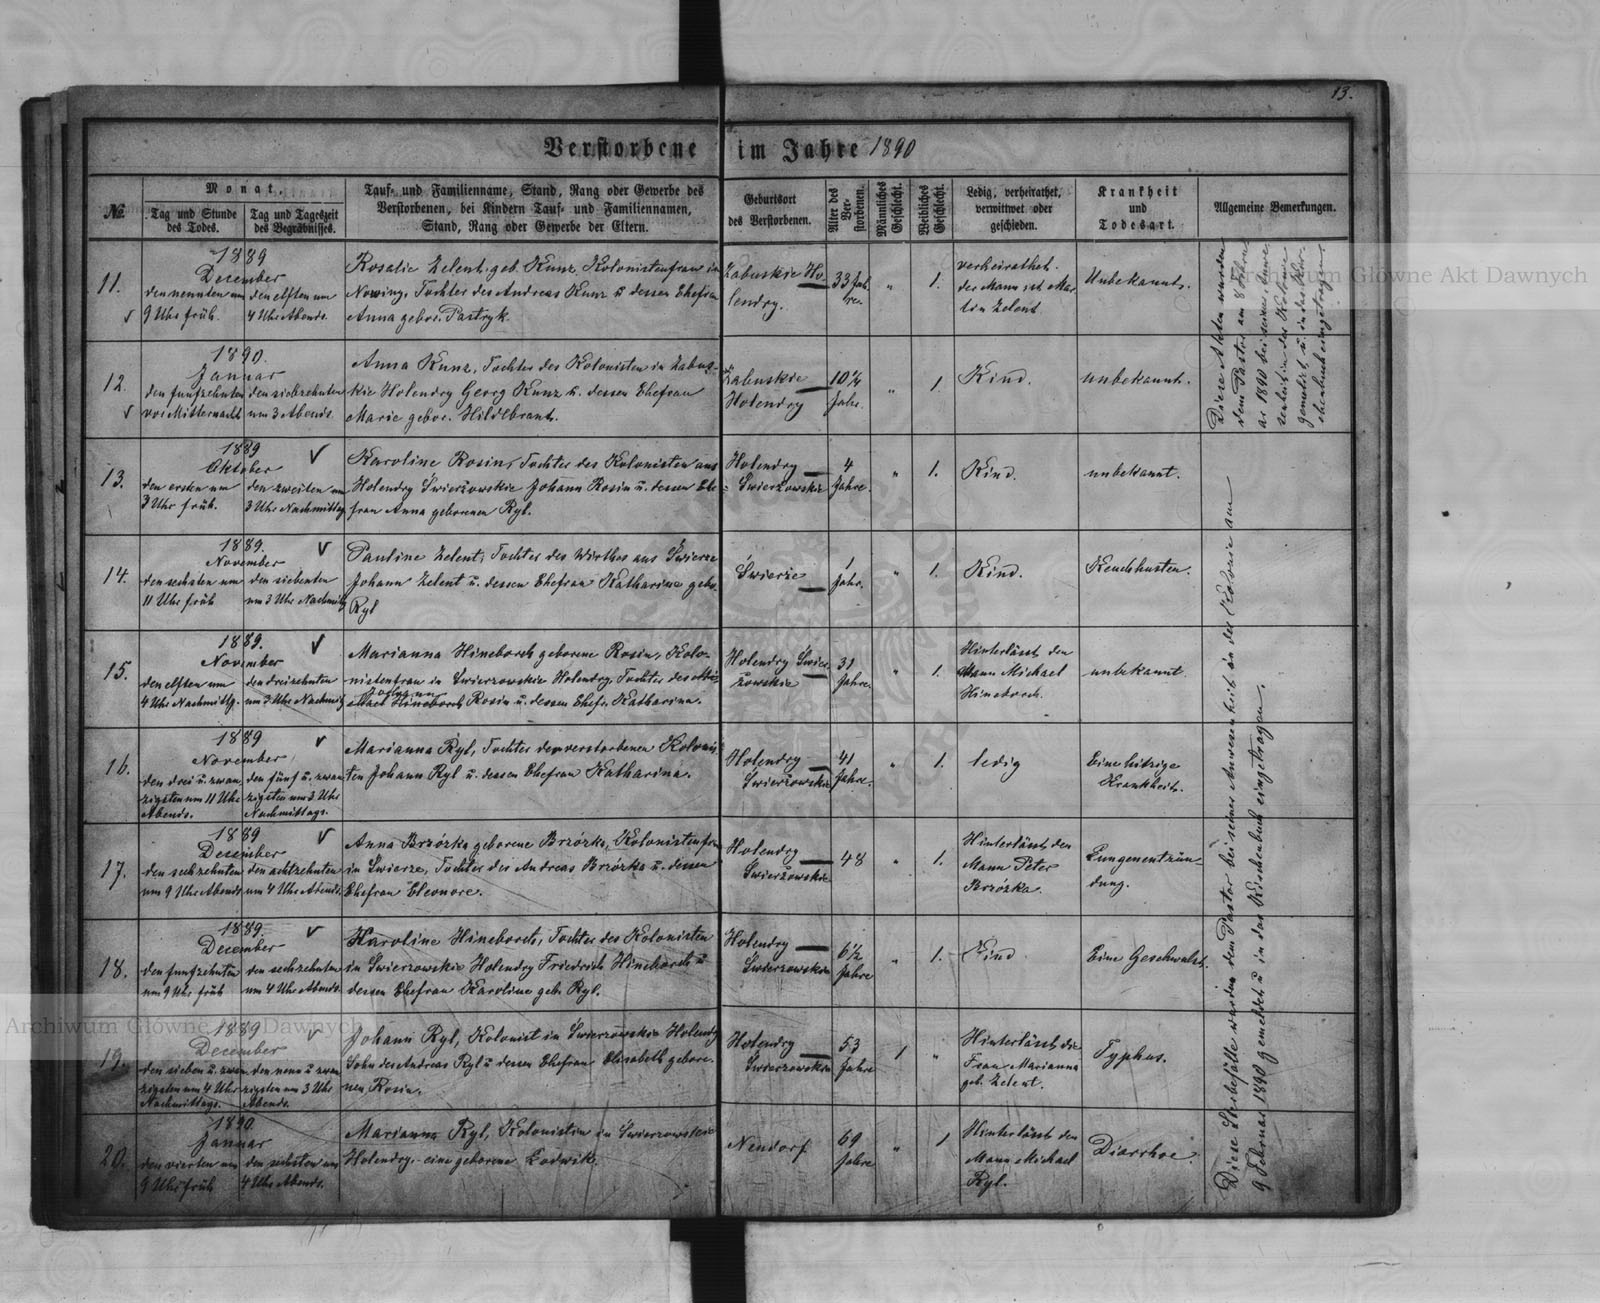 13.
Verstorbene im Jahre 1890
No.
Monat.
Tag und Stunde
des Todes.
Tag und Tageszeit
des Begräbnisses.
Tauf- und Familienname, Stand, Rang oder Gewerbe des
Verstorbenen, bei Kindern Tauf- und Familiennamen,
Stand, Rang oder Gewerbe der Eltern.
Geburtsort
des Verstorbenen.
Alter des
Ver-
storbenen.
Männliches
Geschlecht.
Weibliches
Geschlecht.
Ledig, verheirathet,
verwittwet oder
geschieden.
Krankheit
und
Todesart.
Allgemeine Bemerkungen.
11.
1889
December
den neunten um
9 Uhr früh.
den elften um
4 Uhr Abends.
Rosalie Zelent, geb. Kunz, Kolonistenfrau in
Nowiny, Tochter des Andreas Kunz u dessen Ehefrau
Anna gebor. Pastryk.
Zabuskie Ho-
lendry.
33 Jah
ren.
"
1.
verheirathet.
der Mann ist Mar
tin Zelent
Unbekannt.
12.
1890.
Januar
den funfzehnten
vor Mitternacht
den siebzehnten
um 3 Abends.
Anna Kunz, Tochter des Kolonisten in Zabus-
kie Holendry Georg Kunz u. dessen Ehefrau
Marie gebor. Hildebrant.
Zabuskie
Holendry
10 1/4
Jahr.
"
1
Kind.
unbekannt.
13.
1889
Oktober
den ersten um
3 Uhr früh.
den zweiten um
3 Uhr Nachmittag
Karoline Rosin, Tochter des Kolonisten aus
Holendry Świerżowskie Johann Rosin u. dessen Ehe
frau Anna geborenen Ryl.
Holendry
Swierżowskie
4
Jahre.
"
1.
Kind.
unbekannt.
14.
1889.
November
den sechsten um
11 Uhr früh
den siebenten
um 3 Uhr Nachmitg
Pauline Zelent, Tochter des Wirthes aus Świerze
Johann Zelent u. dessen Ehefrau Katharine gebo.
Ryl
Świerże
1
Jahr.
"
1.
Kind.
Keuchhusten.
15.
1889.
November
den elften um
4 Uhr Nachmittg.
den dreizehnten
um 3 Uhr Nachmitg
Marianna Hineborch geborene Rosin, Kolo-
nistenfrau in Swierzowskie Holendry, Tochter des
Rosin u. dessen Ehefr. Katharina.
Holendry Swier
żowskie
31
Jahre.
"
1.
Hinterlässt den
Mann Michael
Hineborch.
unbekannt
16.
1889
November
den drei u. zwan
zigsten um 11 Uhr
Abends.
den fünf u. zwan
zigsten um 3 Uhr
Nachmittags.
Marianna Ryl, Tochter des verstorbenen Kolonis
ten Johann Ryl u. dessen Ehefrau Katharina.
Holendry
Swierżowskie
41
Jahre.
"
1.
ledig
Eine hitzige
Krankheit.
17.
1889
December
den sechzehnten
um 9 Uhr Abends
den achtzehnten
um 4 Uhr Abends.
Anna Brzózka geborene Brzózka, Kolonistenfrau
in Swierze, Tochter des Andreas Brzózka u. dessen
Ehefrau Eleonore.
Holendry
Swierżowskie
48
"
1.
Hinterlässt den
Mann Peter
Brzózka.
Lungenentzün
dung.
18.
1889.
December
den funfzehnten
um 9 Uhr früh
den sechzehnten
um 4 Uhr Abends.
Karoline Hineborch, Tochter des Kolonisten
in Swierzowskie Holendry Friedrich Hineborch u
dessen Ehefrau Karoline geb. Ryl.
Holendry
Swierzowskie
6 1/2
Jahre
"
1.
Kind
Eine Geschwulst.
19.
1889
December
den sieben u. zwan
zigsten um 4 Uhr
Nachmittags.
den neun u zwan
zigsten um 3 Uhr
Abends.
Johann Ryl, Kolonist in Świerzowskie Holendry
Sohn des Andreas Ryl u dessen Ehefrau Elisabeth gebore-
nen Rosin.
Holendry
Swierzowskie
53
Jahre
1
"
Hinterlässt die
Frau Marianna
geb. Zelent.
Typhus.
20.
1890.
Januar
den vierten um
9 Uhr früh
den sechsten um
4 Uhr Abends.
Marianna Ryl, Kolonistin in Swierzowskie
Holendry, eine geborene Lodwik.
Neudorf
69
Jahre
"
1
Hinterlässt den
Mann Michael
Ryl.
Diarrhoe.
Diese Akten wurden
dem Pastor am 8 Febru
ar 1890 bei seiner Anwe
senheit in der Kolonie
gemeldet u. in das Kir-
chenbuch eingetragen
Diese Sterbefälle wurden dem Pastor bei seiner Anwesenheit in der Kolonie am
9 Februar 1890 gemeldet u in das Kirchenbuch eingetragen.
Archiwum Główne Akt Dawnych
Archiwum Główne Akt Dawnych